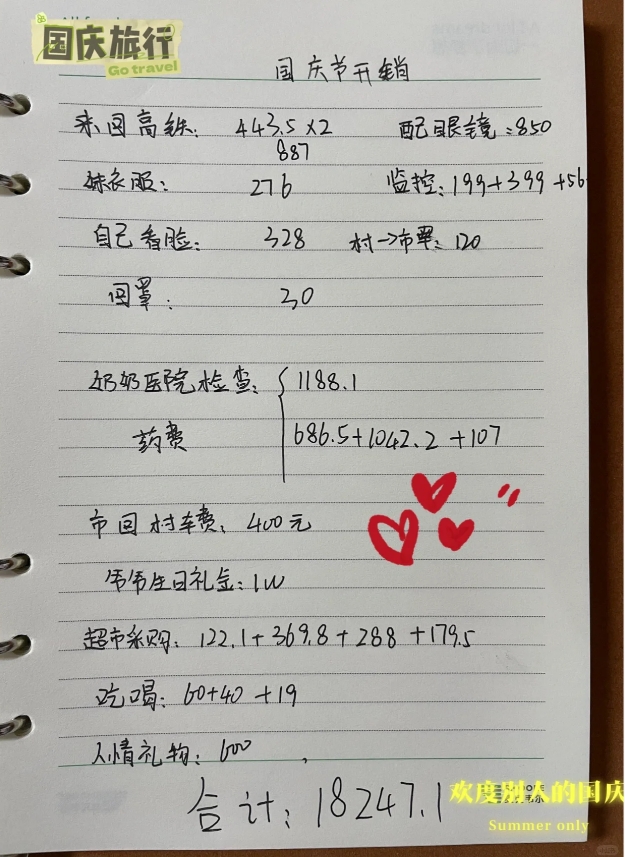 国庆旅行
Go travel
国庆节开销
来回高铁: 443.5×2 配眼镜:850
887
妹衣服: 276 监控:199+399+56
自己看脸: 328 村→市 120
口罩: 30
奶奶医院检查: 1188.1
药费 686.5+1042.2+107
市回村车费: 400元
伟伟生日礼金:1W
超市采购: 122.1+369.8+288+179.5
吃喝: 60+40+19
人情礼物: 600
合计: 18247.1
欢度别人的国庆
Summer only